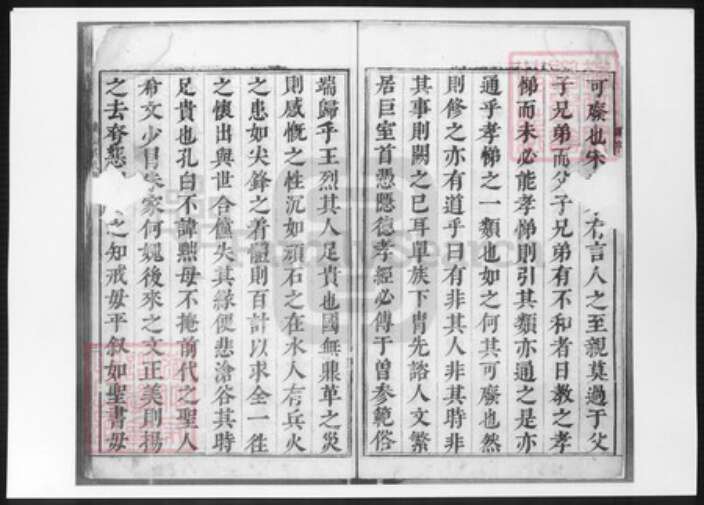 可廢也宋 有言人之至親莫過于父
子兄弟而父子兄弟有不和者日教之孝
悌而未必能孝悌則引其類亦通之是亦
通乎孝悌之一類也如之何其可廢也然
則修之亦有道乎曰有非其人非其時非
其事則闕之已耳單族下胄先諮人文繁
居巨室首憑隱德孝經必傳于曾參範俗
端歸乎王烈其人足貴也國無鼎革之災
則感慨之性沉如頑石之在水人有兵火
之患如尖鋒之着體則百計以求全一徃
之懷出與世合僅失其緣便悲滄谷其時
足貴也孔白不諱黥母不掩前代之聖人
希文少冒朱家何媿後來之文正美則揚
之去脊惡 之知戒毋平叙如聖書毋